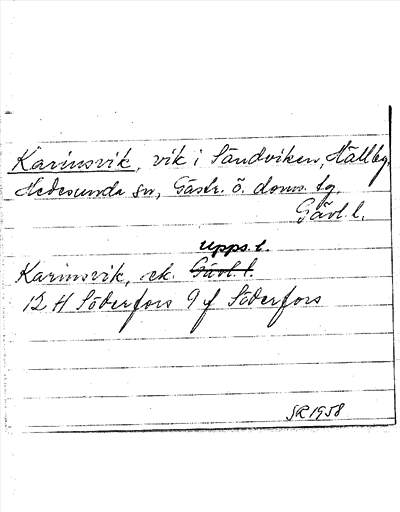 Karinsvik, vik i Sandviken, Hallby,
Hedesunda sn, Gästr. ö. doms. tg.
Gävl. l.
Upps. l.
Karinsvik, ek. Gävl. l.
12 H Söderfors 9 f Söderfors
SR 1958